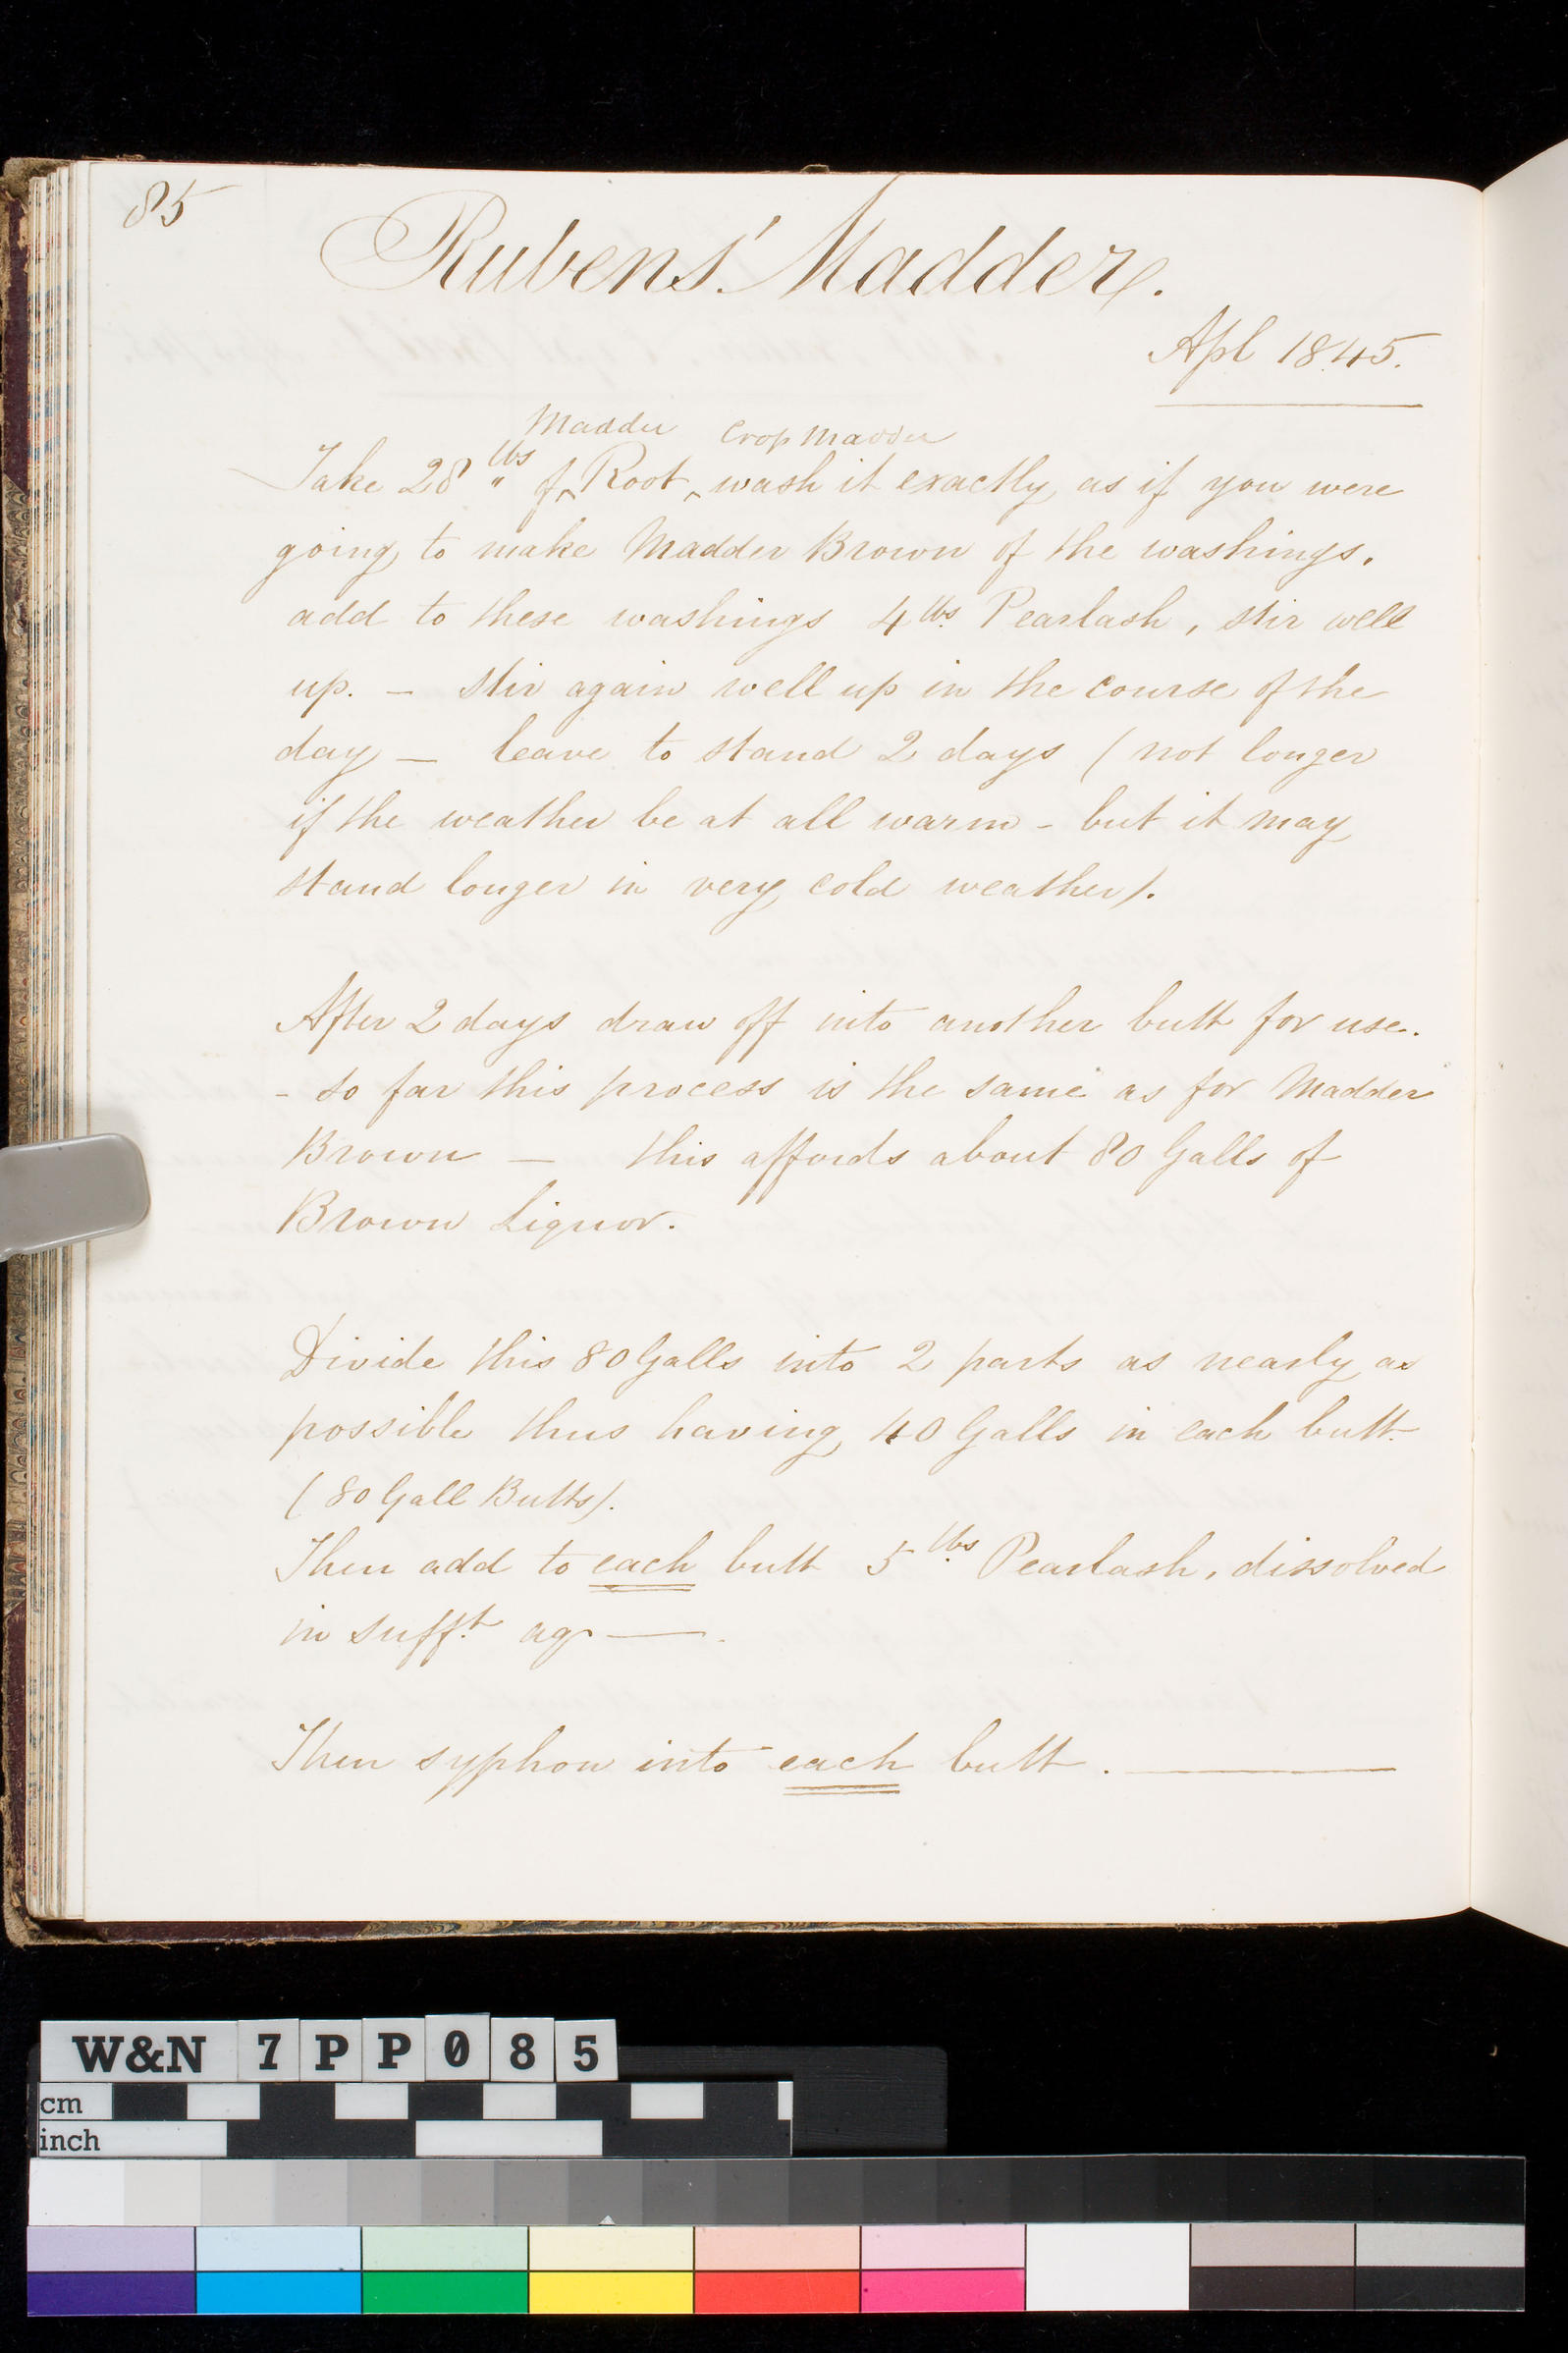 85
Rubens' Madder.
Apl 1845.
Madder Crop Madder
Take 28 lbs of Root wash it exactly as if you were
going to make Madder Brown of the washings.
add to these washings 4 lbs. Pearlash, stir well
up. – stir again well up in the course of the
day – leave to stand 2 days (not longer
if the weather be at all warm – but it may
stand longer in very cold weather).
After 2 days draw off into another butt for use.
– so far this process is the same as for Madder
Brown – this affords about 80 Galls of
Brown Liquor.
Divide this 80 Galls into 2 parts as nearly as
possible thus having 40 Galls in each butt.
(80 Gall Butts).
Then add to each butt 5 lbs. Pearlash, dissolved
in sufft. aq –.
Then syphon into each butt. –
W&N 7PP085
cm
inch